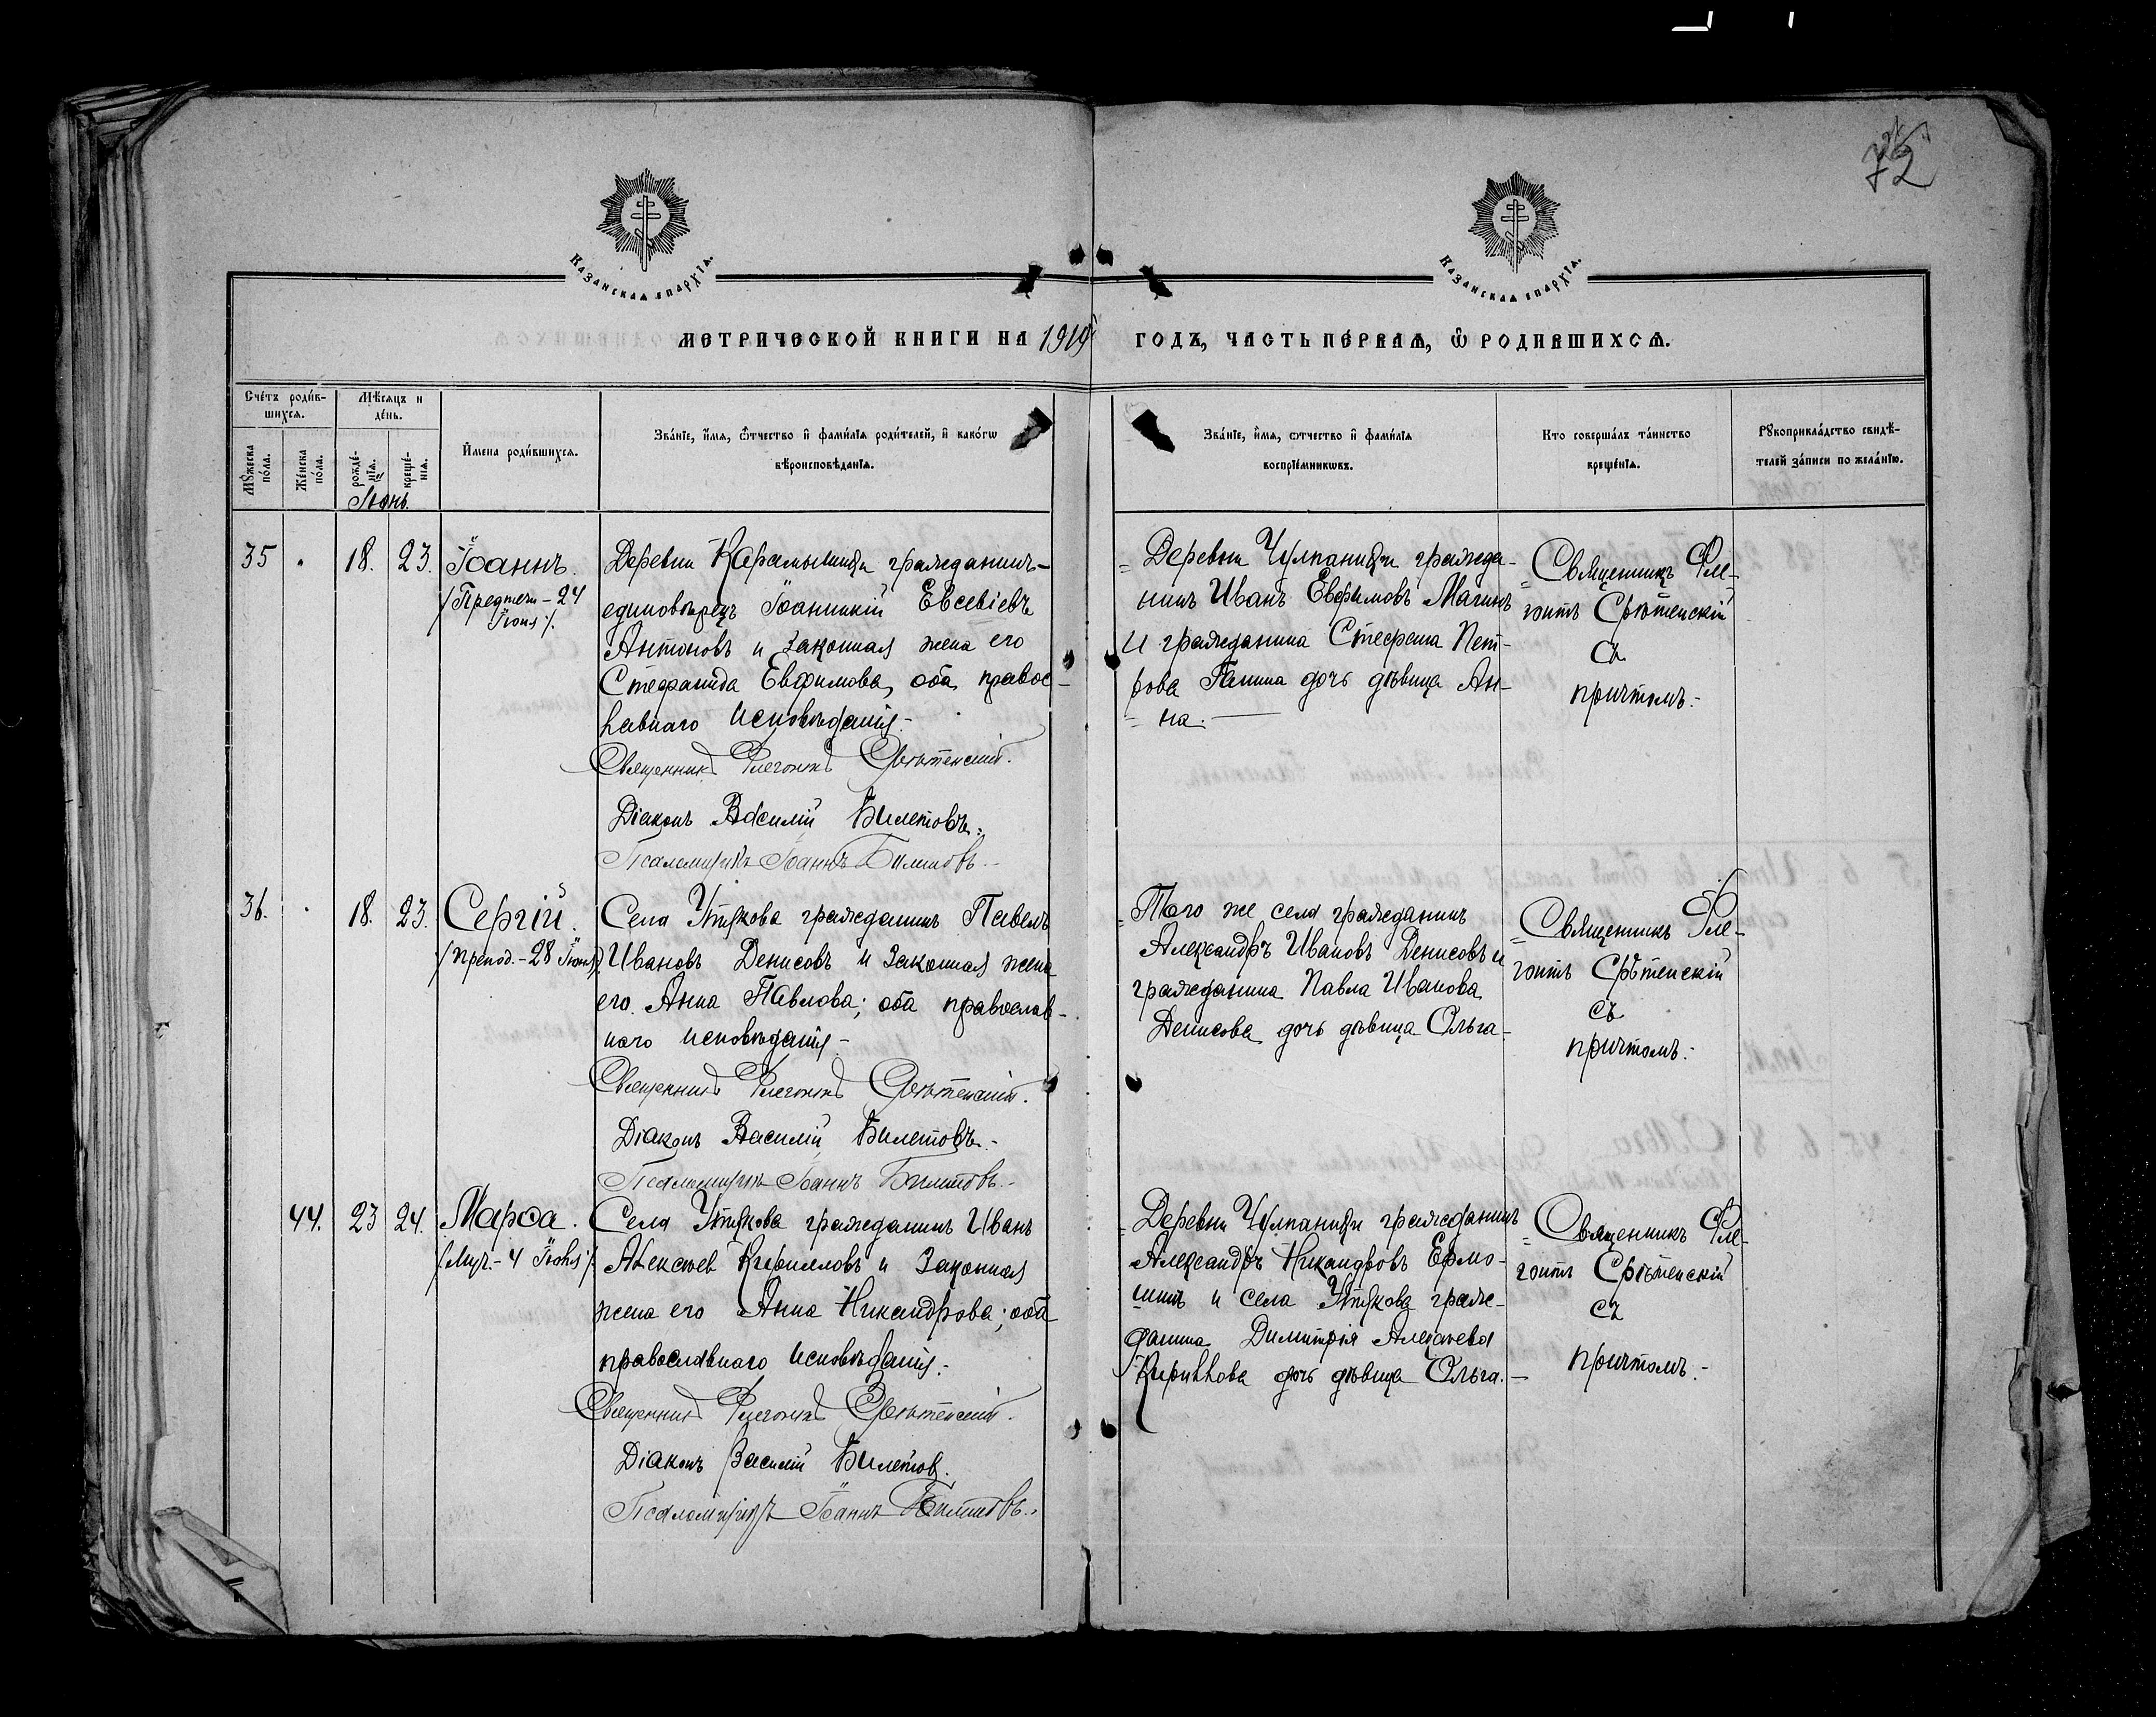 72
Казанская епархїѧ.
Казанская епархїѧ.
МЕТРИЧЕСКОЙ КНИГИ НА 1919 ГОДЪ, ЧАСТЬ ПЕРВАЯ, Ѽ РОДИВШИХСЯ.
Сче́тъ роди́в-
шихся.
Мѣ́сяцъ и
де́нь.
Мꙋ́жеска
по́ла.
Же́нска
по́ла.
рожде́-
нїя.
креще́-
нїя.
Іюнь.
И҆мена роди́вшихся.
Зва́нїе, и҆́мя, ѻ҆́тчество и҆ фами́лїя роди́телей, и҆ како́гѡ
вѣроисповѣ́данїя.
Зва́нїе, и҆́мя, ѻ҆тчество и҆ фами́лїя
воспрїе́мникѡвъ.
Кто соверша́лъ та́инство
креще́нїя.
Рꙋкоприкла́дство свидѣ́-
телей за́писи по жела́нїю.
35 18. 23. Іоаннъ.
/Предтечи - 24
Іюня/.
Деревни Карамышихи гражданинъ-
единовѣрецъ Іоанникій Евсевіевъ
Антоновъ и законная жена его
Стефанида Евфимова, оба правос-
лавнаго исповѣданія.-
Священникъ Флегонтъ Срѣтенскій.
Діаконъ Василій Билетовъ.
Псаломщикъ Іоаннъ Билетовъ.
= Деревни Чулпанихи гражда-
нинъ Иванъ Евфимовъ Матинъ
и гражданина Стефана Пет-
рова Ганина дочь дѣвица Ан-
= на.
= Священникъ Фле-
гонтъ Срѣтенскій
съ
причтомъ.-
36. 18. 23. Сергій.
/препод. - 28 Іюня/
Села Утякова гражданинъ Павелъ
Ивановъ Денисовъ и законная жена
его Анна Павлова; оба православ-
наго исповѣданія-
Священникъ Флегонтъ Срѣтенскій.
Діаконъ Василій Билетовъ.-
Псаломщикъ Іоаннъ Билетовъ.-
= Того же села гражданинъ
Александръ Ивановъ Денисовъ и
гражданина Павла Иванова
Денисова дочь дѣвица Ольга.
= Священникъ Фле-
гонтъ Срѣтенскій
съ
причтомъ.-
44. 23 24. Марѳа.
/Муч. - 4 Іюля/.
Села Утякова гражданинъ Иванъ
Алексѣев Кирилловъ и законная
жена его Анна Никандрова; оба
православнаго исповѣданія.-
Священникъ Флегонтъ Срѣтенскій.
Діаконъ Василій Билетов.
Псаломщикъ Іоаннъ Билетовъ.
= Деревни Чулпанихи гражданинъ
Александръ Никандровъ Ермо-
шинъ и села Утякова граж-
данина Димитрія Алексѣева
Кириллова дочь дѣвица Ольга.-
= Священникъ Фле-
гонтъ Срѣтенскій
съ
причтомъ.-